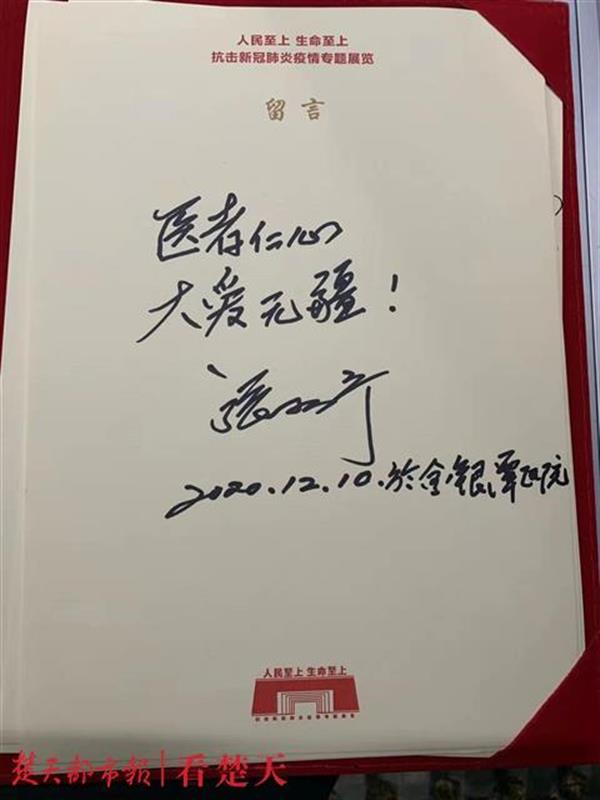 人民至上 生命至上
抗击新冠肺炎疫情专题展览
留言
医者仁心
大爱无疆！
2020.12.10.於金银潭医院
人民至上 生命至上
抗击新冠肺炎疫情专题展览
楚天都市报|看楚天